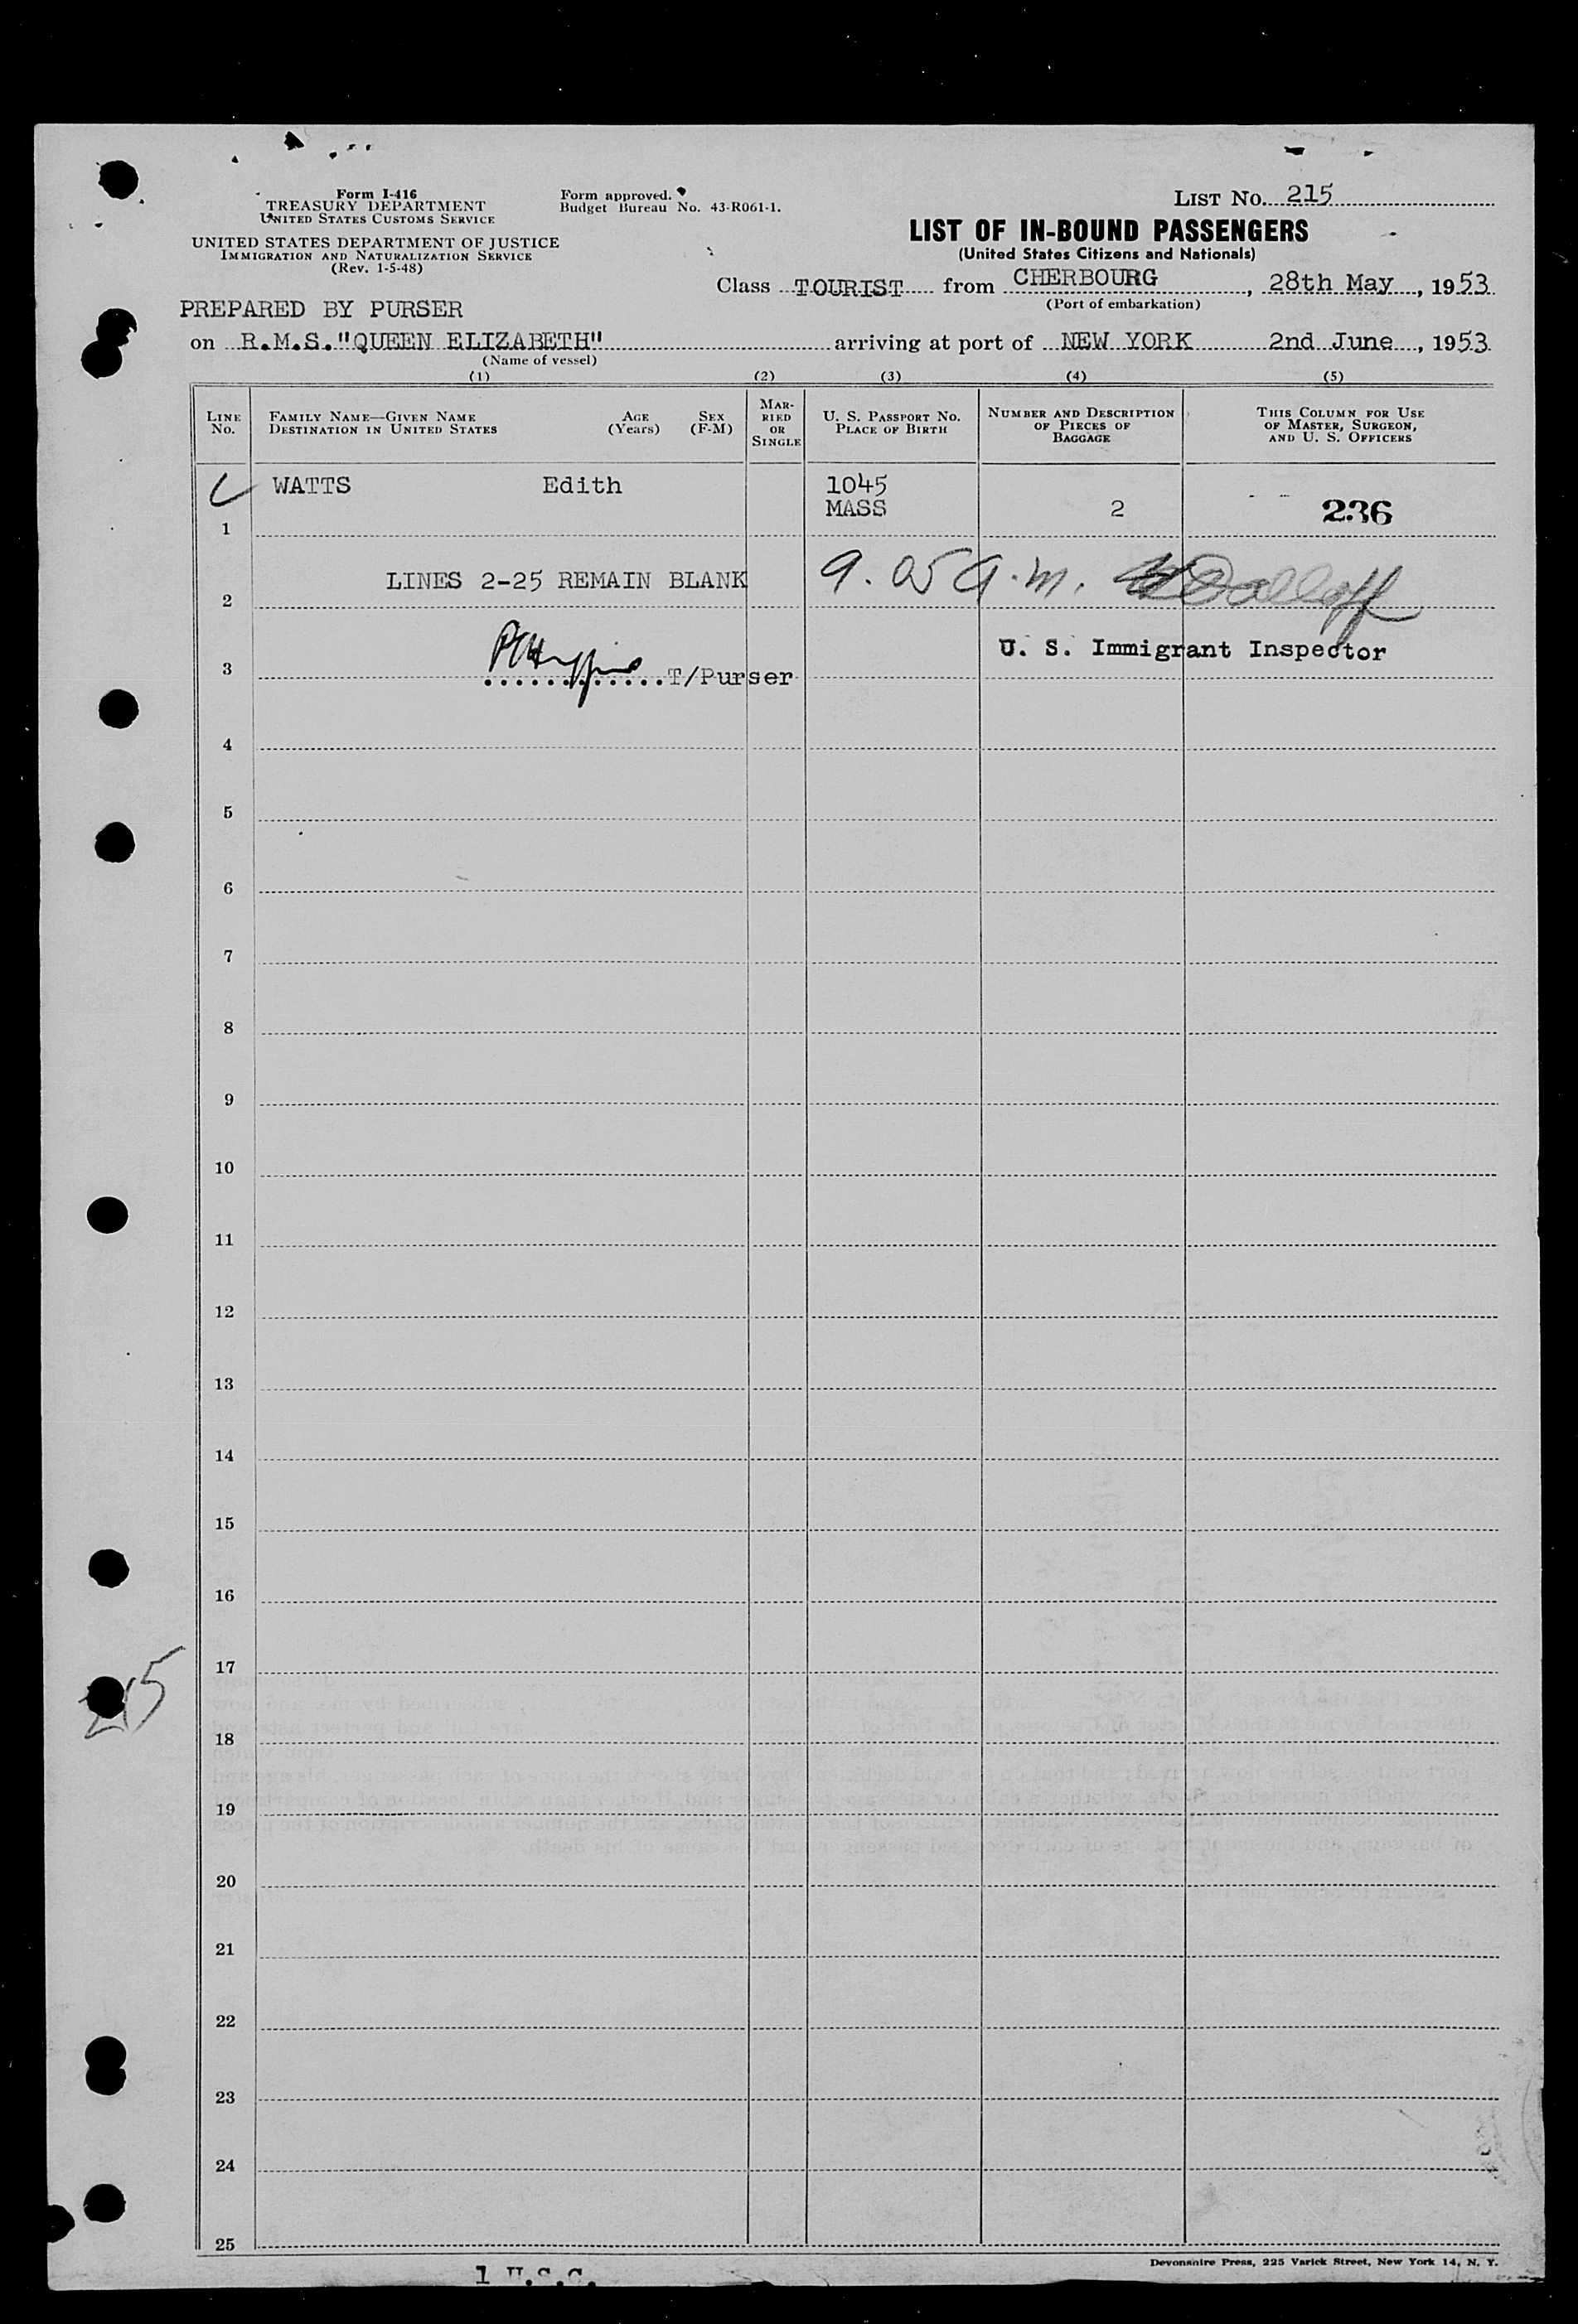 Form I-416
TREASURY DEPARTMENT
UNITED STATES CUSTOMS SERVICE
UNITED STATES DEPARTMENT OF JUSTICE
IMMIGRATION AND NATURALIZATION SERVICE
(Rev. 1-5-48)
Form approved.
Budget Bureau No. 43-R061-1.
LIST NO. 215
LIST OF IN-BOUND PASSENGERS
(United States Citizens and Nationals)
Class TOURIST from CHERBOURG, 28th May, 1953
(Port of embarkation)
PREPARED BY PURSER
on R.M.S. "QUEEN ELIZABETH" arriving at port of NEW YORK 2nd June, 1953
(Name of vessel)
(1) (2) (3) (4) (5)
LINE NO.
FAMILY NAME—GIVEN NAME
DESTINATION IN UNITED STATES
AGE (Years)
SEX (F-M)
MARRIED OR SINGLE
U. S. PASSPORT NO.
PLACE OF BIRTH
NUMBER AND DESCRIPTION
OF PIECES OF
BAGGAGE
THIS COLUMN FOR USE
OF MASTER, SURGEON,
AND U. S. OFFICERS
WATTS Edith 1045
1 MASS 2 236
2 LINES 2-25 REMAIN BLANK 9.05 a.m.
U. S. Immigrant Inspector
3 T/Purser
4
5
6
7
8
9
10
11
12
13
14
15
16
17
215
18
19
20
21
22
23
24
25
Devonshire Press, 225 Varick Street, New York 14, N. Y.
1 U.S.C.